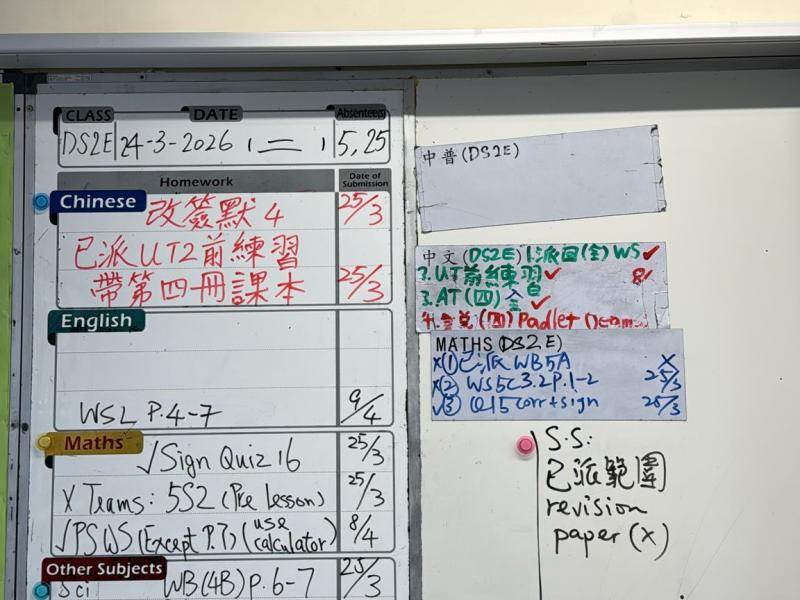 CLASS DATE Absentee(s)
DS2E 24-3-2026 , 二 , 5, 25
Homework Date of Submission
Chinese 改簽默 4 25/3
已派UT2前練習
帶第四冊課本 25/3
English
WSL P.4-7 9/4
Maths √Sign Quiz 16 25/3
X Teams: 5S2 (Pre lesson) 25/3
√PS WS (Except P.7) (use calculator) 8/4
Other Subjects
Sci WB(4B) p. 6-7 25/3
中普(DS2E)
中文(DS2E) 1.派回(全)WS✓
2.UT前練習✓ 8/
3.AT(四)全✓
(四) Padlet
MATHS (DS2E)
X(1)已派WB5A X
X(2) WS5C3.2P.1-2 25/3
√(3) Q15 corr+sign 25/3
S.S:
已派範圍
revision
paper (X)